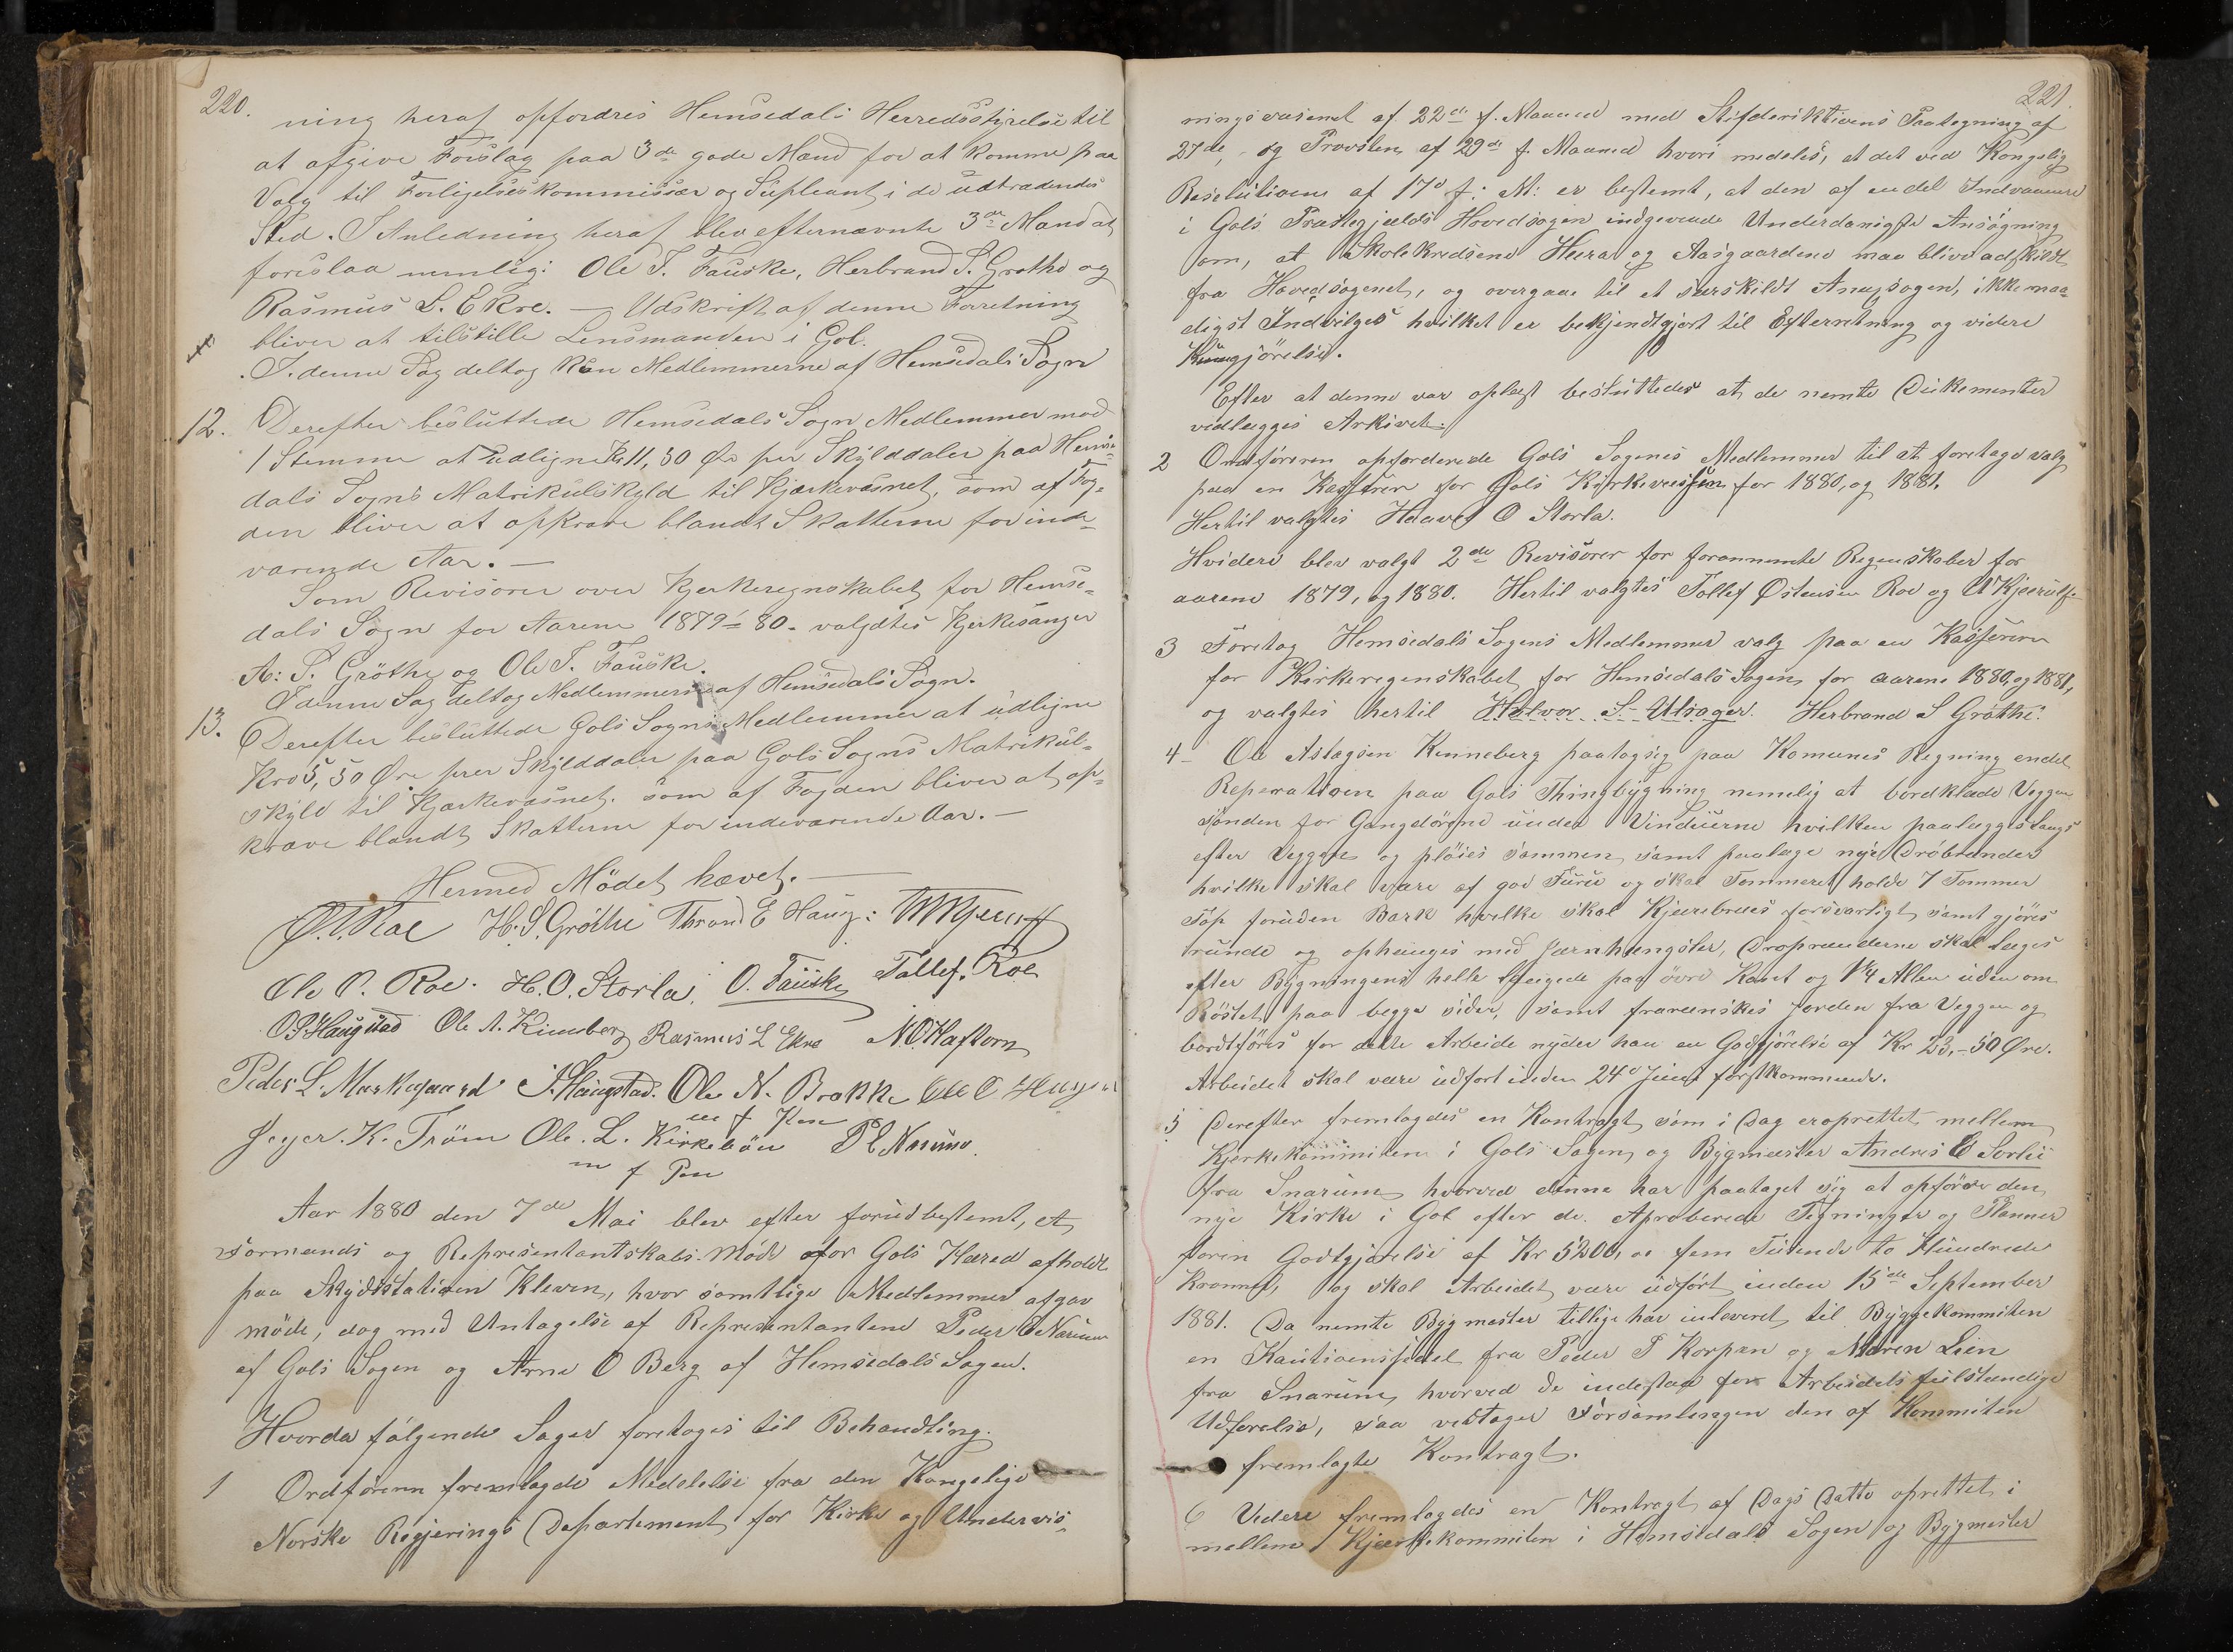 220.
ning heraf opfordres Hemsedals Herredsstyrelse til
at afgive Forslag paa 3de gode Mænd for at komme paa
Valg til Forligelseskommissær og Supleant i de udtrædendes
Sted. I Anledning heraf blev efternævnte 3de Mænd at
foreslaa nemlig: Ole T. Fauske, Herbrand S. Grøthe og
Rasmus L. Ekre. — Udskrift af denne Forretning
bliver at tilstille Lensmanden i Gol.
I denne Sag deltog kun Medlemmerne af Hemsedals Sogn
12. Derefter besluttede Hemsedals Sogn Medlemmer mod
1 Stemme at udligne Kr 11,50 Øre per Skylddaler paa Hemse-
dals Sogns Matrikulskyld til Kjærkevæsnet, som af Fog-
den bliver at opkræve blandt Skatterne for inde-
værende Aar. —
Som Revisorer over Kjerkeregnskabet for Hemse-
dals Sogn for Aarene 1879 - 80 - valgdtes Kjerkesanger
A: S. Gröthe og Ole T. Fauske.
I denne Sag deltog Medlemmerne af Hemsedals Sogn.
13. Derefter besluttede Gols Sogns Medlemmer at udligne
Kro 5,50 Øre per Skylddaler paa Gols Sogns Matrikul-
skyld til Kjærkevæsnet som af Fogden bliver at op-
kræve blandt Skatterne for indeværende Aar. —
Hermed Mödet hævet. —
Ø. T. Roe H. S. Gröthe Thrond E Haug:
Ole O. Roe. H. O. Storla. O. Fauske Tollef. Roe
O. P. Haugstad Ole A. Kinneberg Rasmus L Ekre N. O. Kaftorn
Peder L. Markegaard Haugstad. Ole N. Brokke Ole O
K. Tröm Ole. L. Kirkeböen
m f Pen
Aar 1880 den 7de Mai blev efter forudbestemt, et
Formands og Representantskabs-Möde for Gols Hered afholdt
paa Skydsstationen Kleven, hvor samtlige Medlemmer afgav
möde, dog med Untagelse af Representantene Peder E Narum
af Gols Sogen og Arne O Berg af Hemsedals Sogen.
Hvorda fölgende Sager foretoges til Behandling.
1 Ordföreren fremlagde Meddelelse fra den Kongelige
Norske Regjerings Departement for Kirke og Undervis-
221.
ningsvæsenet af 22de f. Maaned med Stifdirektionens Paategning af
27de, og Provsten af 29de f. Maaned hvori medeles, at det ved Kongelig
Resolutioen af 17de f: M: er bestemt, at den af endel Indvaanere
i Gols Præstegjælds Hovedsogen indgevende Underdanigste Ansögning
om, at Skolekredsene Heera og Aasgaardene maa blive adskildt
fra Hovedsogenet, og overgaa til et særskildt Anexsogen, ikke naa-
digst Indvilges hvilket er bekjendtgjort til Efterretning og videre
Kungjörelse.
Efter at denne var oplæst besluttedes at de nemte Dukementer
vidlægges Arkivet.
2 Ordföreren opforderede Gols Sogenes Medlemmer til at foretage valg
paa en Kasserer for Gols Kirkevæsen for 1880, og 1881.
Hertil valgtes Haavel O Storla.
Hvidere blev valgt 2de Revisorer for forannemte Regenskaber for
aarene 1879, og 1880. Hertil valgtes Tollef Østensen Roe og A Kjerulf
3 Foretog Hemsedals Sogens Medlemmer valg paa en Kassererer
for Kirkeregenskabet for Hemsedals Sogen for aarene 1880, og 1881,
og valgtes hertil Halvor S. Ulsager. Herbrand S Gröthe.
4- Ole Aslagsen Kinneberg paatog sig paa Komunes Regning endel
Reperatioen paa Gols Thingbygning nemelig at bordklæde Veggen
sönden for Gangdörene under Vinduerne hvilken paalægges Langs
efter Veggen og plöies sammen samt paalæge nye Dröbrender
hvilke skal være af god Furu og skal Tommeret holde 7 Tommer
Top foruden Bark hvilke skal Kjærebrees forsvarligt samt gjöres
runde og ophænges med Jærnhængsler, Dropræderne skal læges
efter Bygningens helle Længde paa övre Kant og 1 1/4 Allen uden om
Röstet paa begge sider, samt frarenskes Jorden fra Veggen og
bordtföres for dette Arbeide nyder han en Godgjörelse af Kr 23,-50 Øre.
Arbeidet skal være udfort inden 24de Juni förstkommende.
5 Derefter fremlagdes en Kontragt som i Dag er oprettet mellem
Kjerkekommiteen i Gols Sogen og Bygmæster Andres E Sorlie
fra Snarum hvorved denne har paataget sig at opföre den
nye Kirke i Gol efter de Aproberede Tegninger og Planner
foren Godtgjörelse af Kr 5200, er fem Tusende to Hundrede
Kronner, og skal Arbeidet være udfört inden 15de September
1881. Da nemte Bygmester tillige har inleveret til Byggekommiten
en Kautioensseddel fra Peder P Korpen og Maren Lien
fra Snarum, hvorved de indestaa for Arbeidets fulstændige
Udforelse, saa vedtager Forsamlingen den af Kommiten
fremlagte Kontragt.
6 Videre fremlagdes en Kontragt af Dags Datto oprettet i
mellem Kjærkekommiten i Hemsedals Sogen og Bygmester